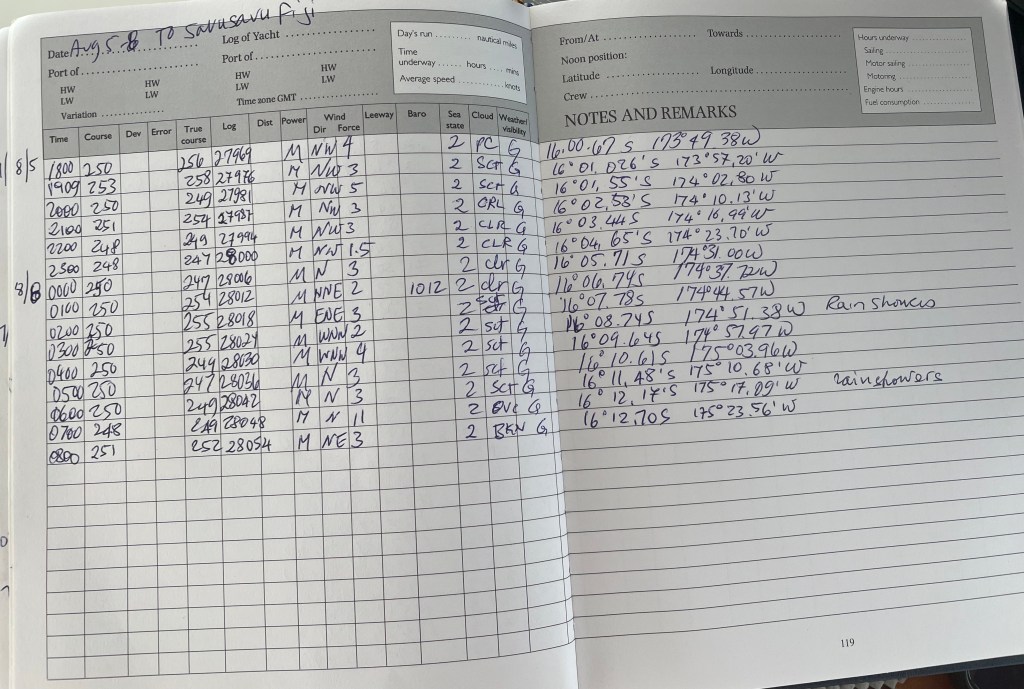 Date Aug. 5-8 To Savusavu Fiji
Log of Yacht
Port of
Port of
HW
HW
HW
HW
LW
LW
LW
LW
Variation
Time zone GMT
Day's run nautical miles
Time
underway hours mins
Average speed knots
Time Course Dev Error True course Log Dist Power Wind Dir Force Leeway Baro Sea state Cloud Weather/ visibility
8/5 1800 250 256 27969 M NW 4 2 PC G
1909 253 258 27976 M NW 3 2 SCT G
2000 250 249 27981 M NW 5 2 SCT G
2100 251 254 27987 M NW 3 2 G
2200 248 249 27994 M NW 3 2 CLR G
2300 248 247 28000 M NW 1.5 2 CLR G
8/6 0000 250 247 28006 M N 3 2 clr G
0100 250 254 28012 M NNE 2 1012 2 clr G
0200 250 255 28018 M ENE 3 2 G
0300 250 255 28024 M WNN 2 2 sct G
0400 250 249 28030 M WNN 4 2 sct G
0500 250 247 28036 M N 3 2 sct G
0600 250 249 28042 M N 3 2 SCT G
0700 248 249 28048 M N 11 2 OVC G
0800 251 252 28054 M NE 3 2 BKN G
From/At
Towards
Noon position:
Latitude
Longitude
Crew
Hours underway
Sailing
Motor sailing
Motoring
Engine hours
Fuel consumption
NOTES AND REMARKS
16.00.67 S 173°49.38W
16°01.026'S 173°57.20'W
16°01.55'S 174°02.80W
16°02.53'S 174°10.13'W
16°03.44S 174°16.99'W
16°04.65'S 174°23.70'W
16°05.71S 174°31.00W
16°06.74S 174°37.72W
16°07.78S 174°44.57W
16°08.74S 174°51.38W Rain Showers
16°09.64S 174°57.97W
16°10.61S 175°03.96W
16°11.48'S 175°10.68'W
16°12.17'S 175°17.09'W rainshowers
16°12.70S 175°23.56'W
119